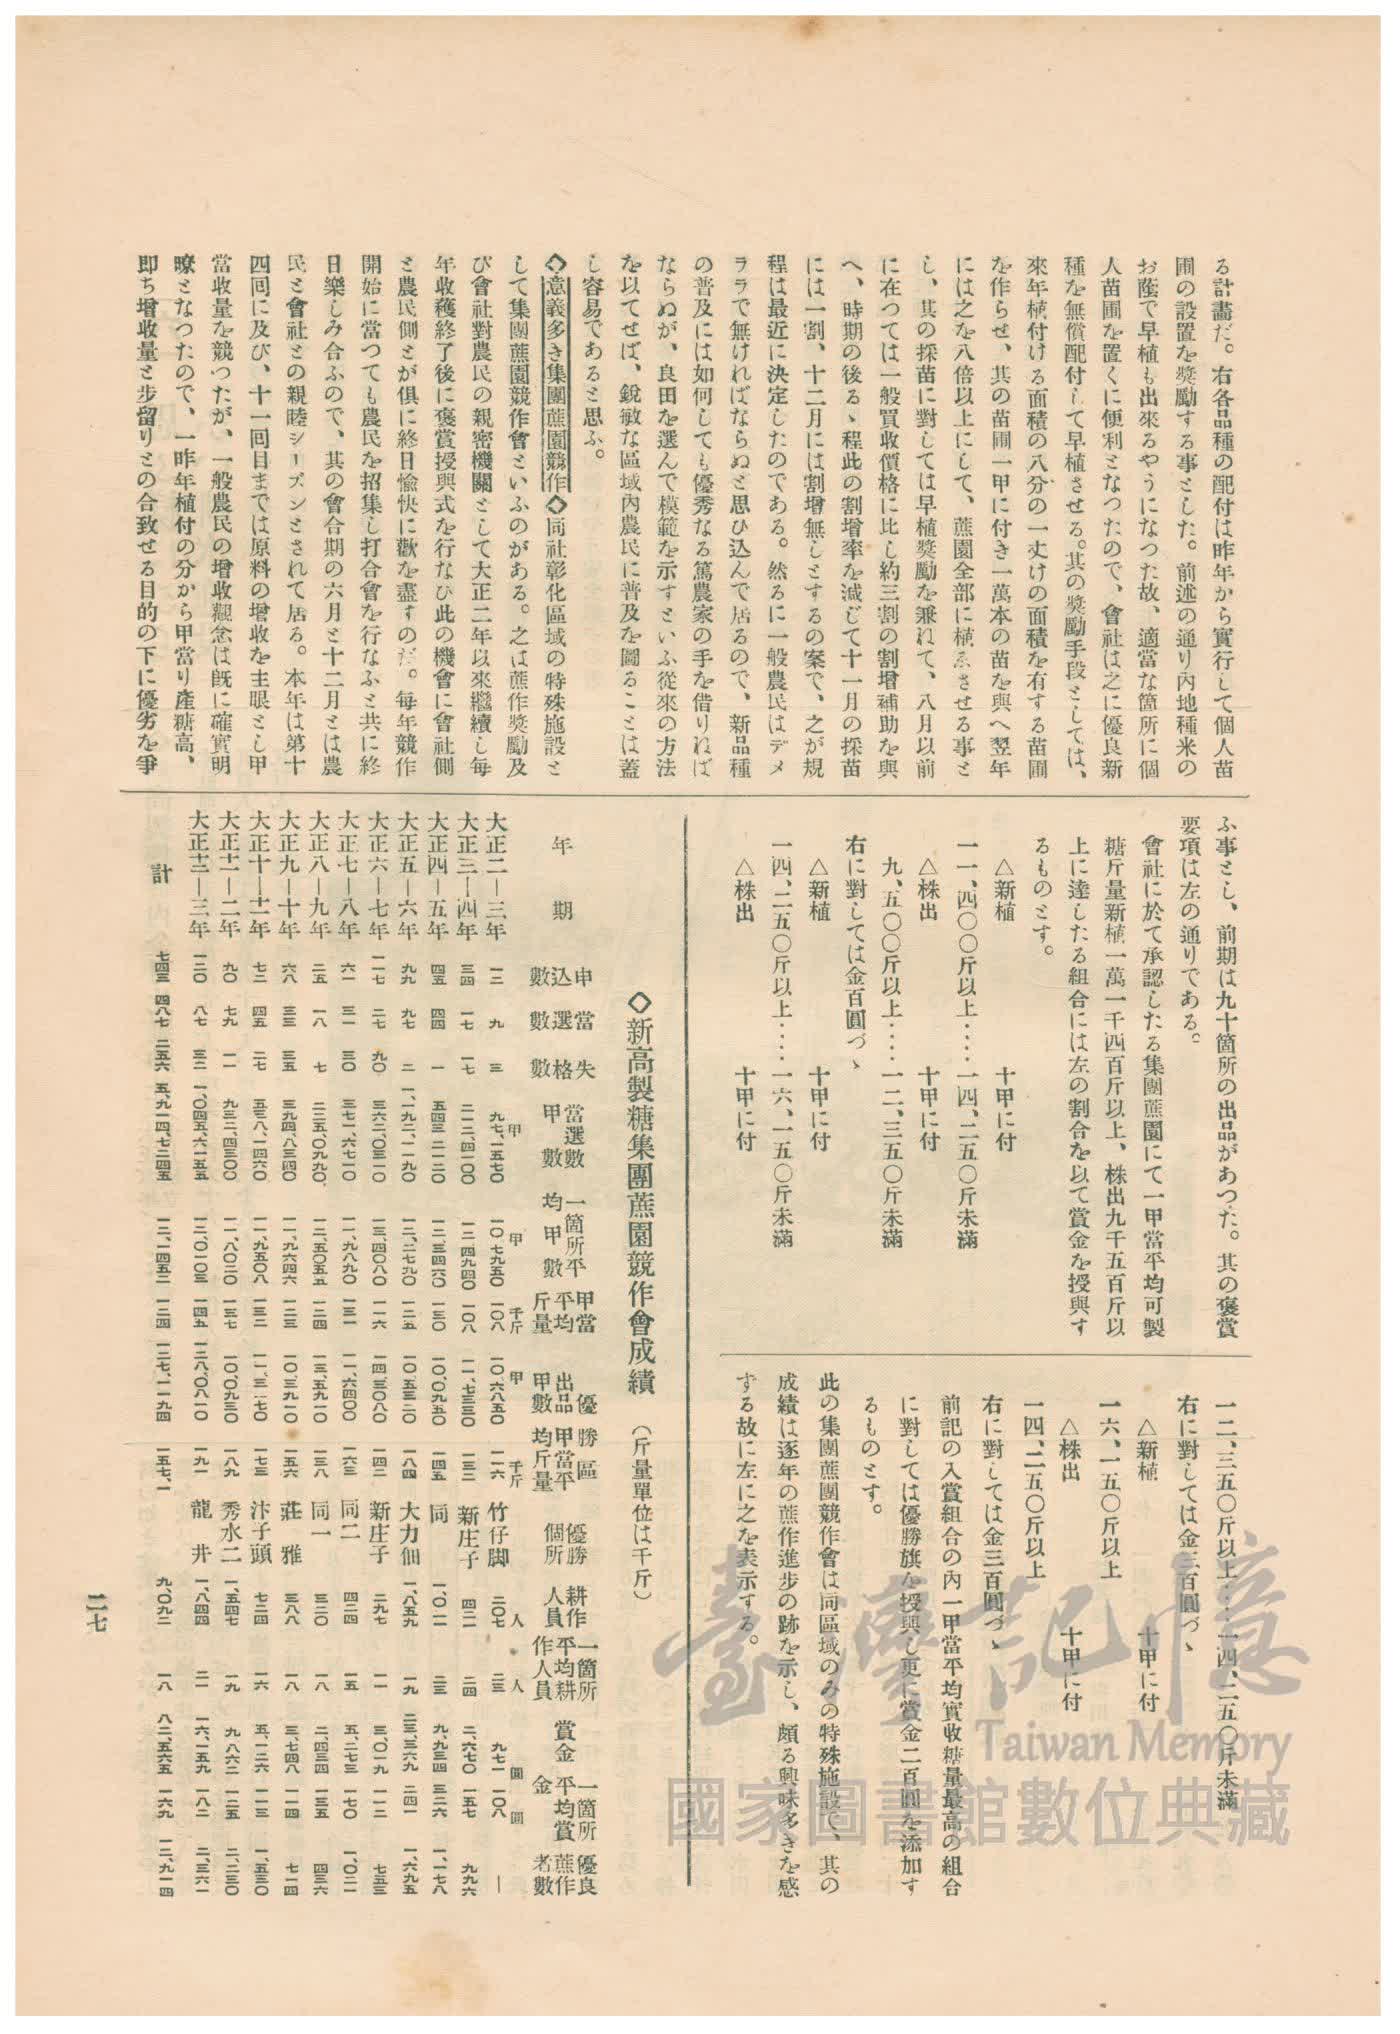 る計畫だ。右各品種の配付は昨年から實行して個人苗
圃の設置を奬勵する事とした。前述の通り內地種米の
お蔭で早植も出來るやうになつた故、適當な箇所に個
人苗圃を置くに便利となつたので、會社は之に優良新
種を無償配付して早植させる。其の奬勵手段としては、
來年植付ける面積の八分の一丈けの面積を有する苗圃
を作らせ、其の苗圃一甲に付き一萬本の苗を與へ翌年
には之を八倍以上にして、蔗園全部に植ゑさせる事と
し、其の採苗に對しては早植奬勵を兼れて、八月以前
に在つては一般買收價格に比し約三割の割增補助を與
へ、時期の後るゝ程此の割增率を減じて十一月の採苗
には一割、十二月には割增無しとするの案で、之が規
程は最近に決定したのである。然るに一般農民はデメ
ララで無ければならぬと思ひ込んで居るので、新品種
の普及には如何しても優秀なる篤農家の手を借りねば
ならぬが、良田を選んで模範を示すといふ從來の方法
を以てせば、銳敏な區域內農民に普及を圖ることは蓋
し容易であると思ふ。
◇意義多き集團蔗園競作◇同社彰化區域の特殊施設と
して集團蔗園競作會といふのがある。之は蔗作奬勵及
び會社對農民の親密機關として大正二年以來繼續し每
年收穫終了後に褒賞授與式を行なひ此の機會に會社側
と農民側とが俱に終日愉快に歡を盡すのだ。每年競作
開始に當つても農民を招集し打合會を行なふと共に終
日樂しみ合ふので、其の會合期の六月と十二月とは農
民と會社との親睦シーズンとされて居る。本年は第十
四回に及び、十一回目までは原料の增收を主眼とし甲
當收量を競つたが、一般農民の增收觀念は既に確實明
瞭となつたので、一昨年植付の分から甲當り產糖高、
卽ち增收量と步留りとの合致せる目的の下に優劣を爭
ふ事とし、前期は九十箇所の出品があつた。其の褒賞
要項は左の通りである。
會社に於て承認したる集團蔗園にて一甲當平均可製
糖斤量新植一萬一千四百斤以上、株出九千五百斤以
上に達したる組合には左の割合を以て賞金を授與す
るものとす。
△新植　十甲に付
一一、四〇〇斤以上‥‥一四、二五〇斤未滿
△株出　十甲に付
九、五〇〇斤以上‥‥一二、三五〇斤未滿
右に對しては金百圓づゝ
△新植　十甲に付
一四、二五〇斤以上‥‥一六、一五〇斤未滿
△株出　十甲に付
一二、三五〇斤以上‥‥一四、二五〇斤未滿
右に對しては金三百圓づゝ
△新植　十甲に付
一六、一五〇斤以上
△株出　十甲に付
一四、二五〇斤以上
右に對しては金三百圓づゝ
前記の入賞組合の內一甲當平均實收糖量最高の組合
に對しては優勝旗を授與し更に賞金二百圓を添加す
るものとす。
此の集團蔗園競作會は同區域のみの特殊施設で、其の
成績は逐年の蔗作進步の跡を示し、頗る興味多きを感
ずる故に左に之を表示する。
◇新高製糖集團蔗園競作會成績　（斤量單位は千斤）
年期　申込數　當選數　失格數　當選甲數　一箇所平均甲數　甲當平均斤量　優勝區　出品甲數　甲當平均斤量　優勝個所　耕作人員　一箇所平均耕作人員　賞金　一箇所平均賞金　優良蔗作者數
甲　甲　千斤　甲　千斤　人　人　圓　圓
大正二―三年　一二　九　三　九七、一五七〇　一〇、七九五〇　一〇八　一〇、六八五〇　一一六　竹仔脚　二〇七　二三　九七一　一〇八　―
大正三―四年　三四　一七　一七　二一二、四一〇〇　一二、四九四〇　一〇八　一一、七三三〇　一三二　新庄子　四二一　二四　二、六七〇　一五七　九九六
大正四―五年　四五　四四　一　五四三、二一二〇　一二、三四六〇　一三〇　一〇、〇九五〇　一四五　同　一、〇一一　二三　九、九三四　二二六　一、一七八
大正五―六年　九九　九七　二　一、一九二、一一九〇　一二、二七九〇　一二五　一〇、五三二〇　一八四　大力佃　一、八五九　一九　二三、三六九　二四一　一、六九五
大正六―七年　一一七　二七　九〇　三六二、〇三一〇　一三、四〇八〇　一一六　一四、三〇八〇　一四二　新庄子　二九七　一一　三、〇一九　一一二　七五三
大正七―八年　六一　三一　三〇　三七一、六七一〇　一一、九八九〇　一三一　一一、六四〇〇　一六三　同二　四二四　一五　五、二七三　一七〇　一、〇二一
大正八―九年　二五　一八　七　二三五、〇九九〇　一二、五〇五五　一二四　一三、五九一〇　一三八　同一　三二〇　一八　二、四三四　一三五　四三六
大正九―十年　六八　三三　三五　三九四、八三四〇　一一、九六四六　一二三　一〇、三九一〇　一五六　莊雅　三八八　一八　三、七四八　一一四　七一四
大正十―十一年　七二　四五　二七　五三八、一四六〇　一一、九五〇八　一三二　一一、三一七〇　一七三　汴子頭　七二四　一六　五、一二六　一一三　一、五三〇
大正十一―二年　九〇　七九　一一　九三二、四三〇〇　一一、八〇二〇　一三七　一〇、〇九三〇　一八九　秀水二　一、五四七　一九　九、八六二　一二五　二、二三〇
大正十二―三年　一二〇　八七　三二　一、〇四五、六一五五　一二、〇一〇三　一四五　一二八、〇八一〇　一九一　龍井　一、八四四　二一　一六、一五九　一八二　二、三六一
計　七四三　四八七　二五六　五、九一四、七二四五　一二、一四五二　一二四　一二七、一一九四　一五七、一　九、〇九二　一八　八二、五六五　一六九　二、九一四
二七
臺灣記憶
Taiwan Memory
國家圖書館數位典藏